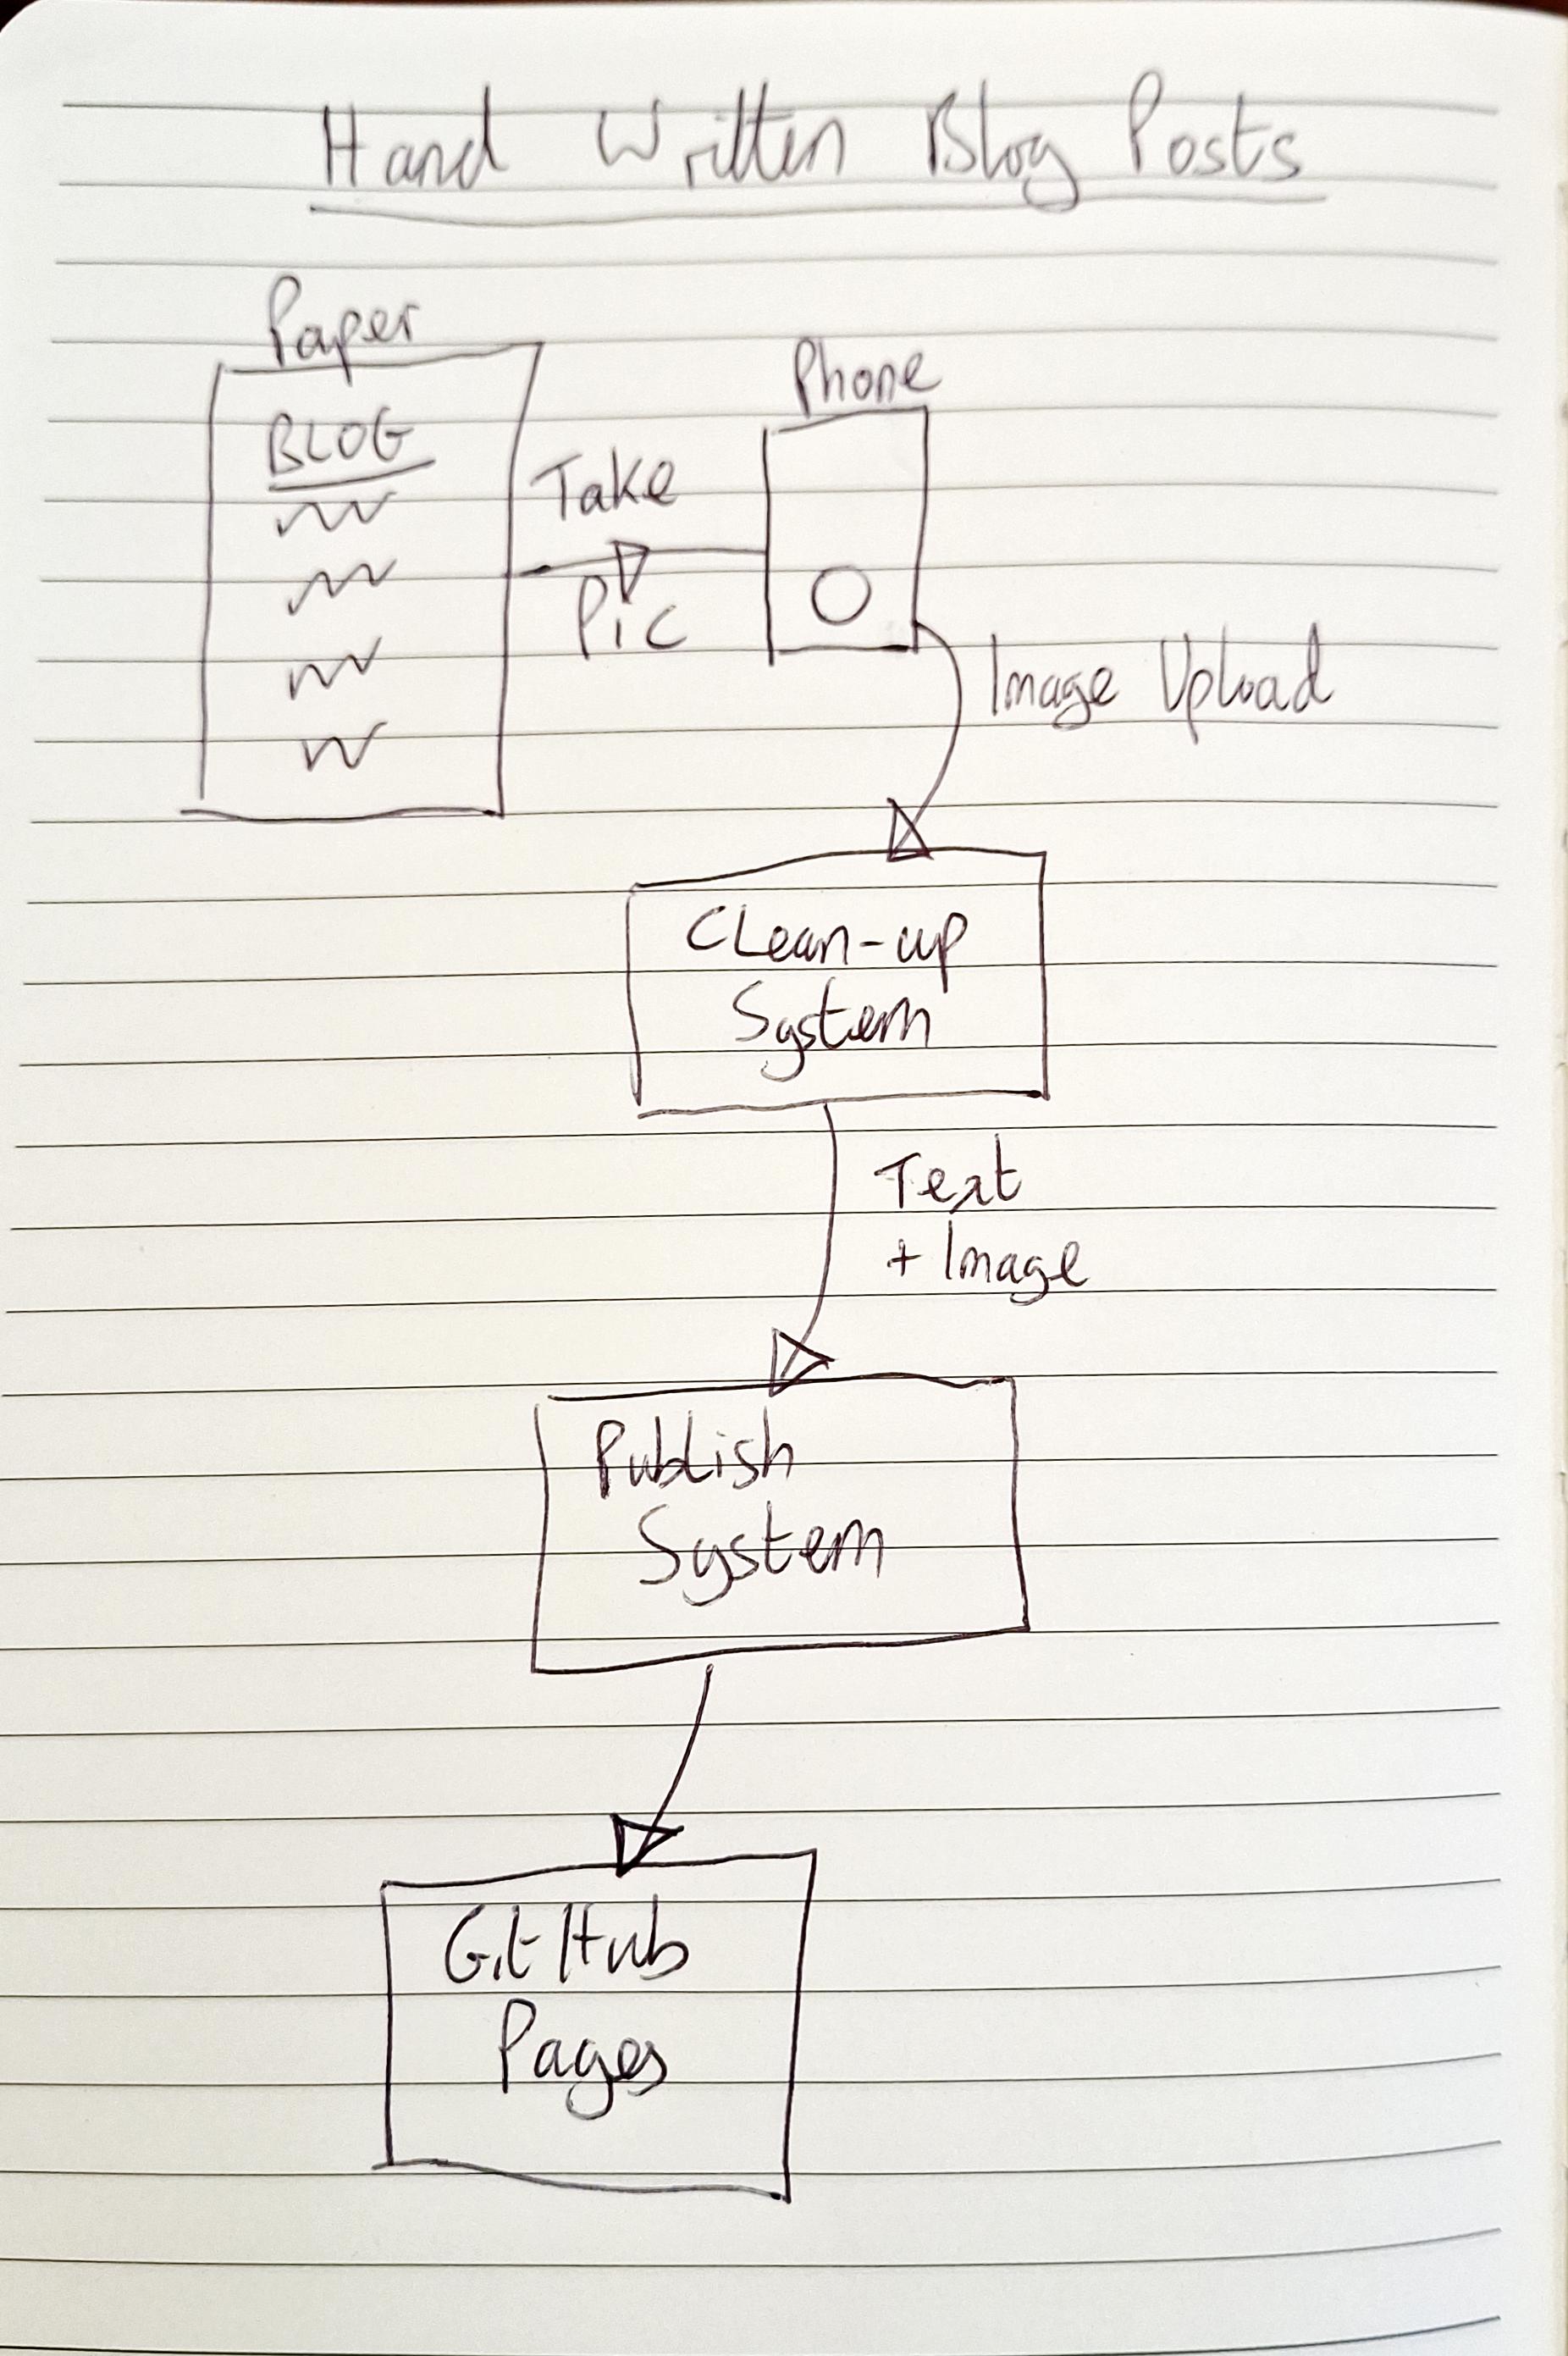 Hand Written Blog Posts
Paper
BLOG
Phone
Take
Pic
Image Upload
CLean-up
System
Text
+ Image
Publish
System
GitHub
Pages